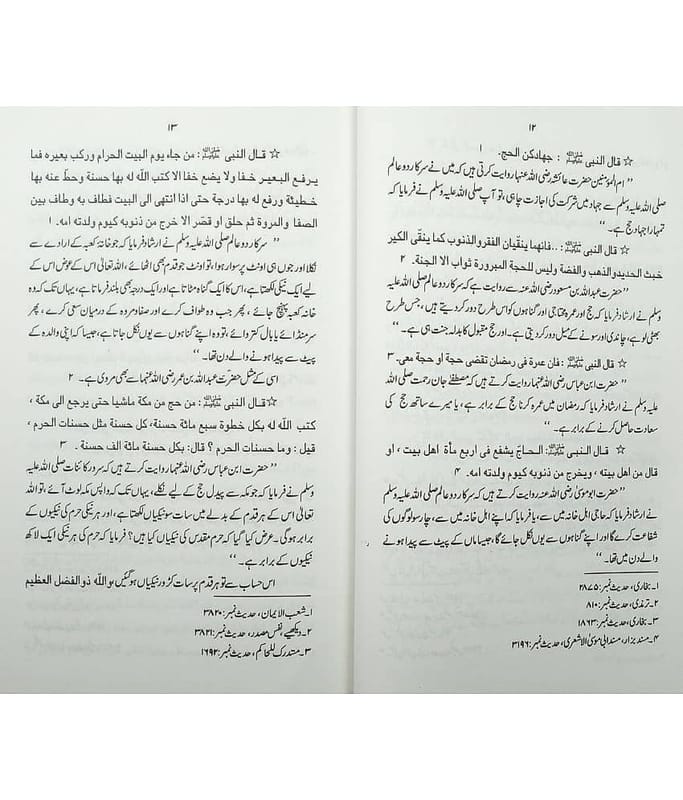 ۱۲
☆ قال النبی ﷺ : جهادکن الحج. ۱
’’ ام المؤمنین حضرت عائشہ رضی اللہ عنہا روایت کرتی ہیں کہ میں نے سرکار دو عالم
صلی اللہ علیہ وسلم سے جہاد میں شرکت کی اجازت چاہی، تو آپ صلی اللہ علیہ وسلم نے فرمایا کہ
تمہارا جہاد حج ہے۔‘‘
☆ قال النبی ﷺ : ..فانهما ینقیان الفقر والذنوب کما ینقی الکیر
خبث الحدید والذهب والفضة ولیس للحجة المبرورة ثواب الا الجنة. ۲
’’ حضرت عبداللہ بن مسعود رضی اللہ عنہ سے روایت ہے کہ سرکار دو عالم صلی اللہ علیہ
وسلم نے ارشاد فرمایا کہ حج اور عمرہ محتاجی اور گناہوں کو اس طرح دور کر دیتے ہیں، جس طرح
بھٹی لوہے، چاندی اور سونے کے میل دور کر دیتی ہے۔ اور حج مقبول کا بدلہ جنت ہی ہے۔‘‘
☆ قال النبی ﷺ : فان عمرة فی رمضان تقضی حجة او حجة معی. ۳
’’ حضرت ابن عباس رضی اللہ عنہما روایت کرتے ہیں کہ مصطفےٰ جان رحمت صلی اللہ
علیہ وسلم نے ارشاد فرمایا کہ رمضان میں عمرہ کرنا حج کے برابر ہے، یا میرے ساتھ حج کی
سعادت حاصل کرنے کے برابر ہے۔‘‘
☆ قال النبی ﷺ : الحاج یشفع فی اربع مأة اهل بیت ، او
قال من اهل بیته ، ویخرج من ذنوبه کیوم ولدته امه. ۴
’’ حضرت ابوموسیٰ رضی اللہ عنہ روایت کرتے ہیں کہ سرکار دو عالم صلی اللہ علیہ وسلم
نے ارشاد فرمایا کہ حاجی اہل خانہ میں سے، یا فرمایا کہ اپنے اہل خانہ میں سے، چار سو لوگوں کی
شفاعت کرے گا اور اپنے گناہوں سے یوں نکل جائے گا، جیسا ماں کے پیٹ سے پیدا ہونے
والے دن میں تھا۔‘‘
۱۔ بخاری، حدیث نمبر: ۲۸۷۵
۲۔ ترمذی، حدیث نمبر: ۸۱۰
۳۔ بخاری، حدیث نمبر: ۱۸۶۳
۴۔ مسند بزار، مسند ابی موسیٰ الاشعری، حدیث نمبر: ۳۱۹۶
۱۳
☆ قال النبی ﷺ : من جاء یوم البیت الحرام ورکب بعیره فما
یرفع البعیر خفا ولا یضع خفا الا کتب اللّٰه له بها حسنة وحطّ عنه بها
خطیئة ورفع له بها درجة حتی اذا انتهی الی البیت فطاف به وطاف بین
الصفا والمروة ثم حلق او قصّر الا خرج من ذنوبه کیوم ولدته امه. ۱
’’ سرکار دو عالم صلی اللہ علیہ وسلم نے ارشاد فرمایا کہ جو خانہ کعبہ کے ارادے سے
نکلا اور جوں ہی اونٹ پر سوار ہوا، تو اونٹ جو قدم بھی اٹھائے، اللہ تعالیٰ اس کے عوض اس کے
لیے ایک نیکی لکھتا ہے، اس کا ایک گناہ مٹاتا ہے اور ایک درجہ بھی بلند فرماتا ہے، یہاں تک کہ وہ
خانہ کعبہ پہنچ جائے، پھر جب وہ طواف کرے اور صفا و مروہ کے درمیان سعی کرے، پھر
سر منڈائے یا بال کتروائے، تو وہ اپنے گناہوں سے یوں نکل جاتا ہے، جیسا کہ اپنی والدہ کے
پیٹ سے پیدا ہونے والے دن تھا۔‘‘
اسی کے مثل حضرت عبداللہ بن عمر رضی اللہ عنہما سے بھی مروی ہے۔ ۲
☆ قال النبی ﷺ : من حج من مکة ماشیا حتی یرجع الی مکة ،
کتب اللّٰه له بکل خطوة سبع مائة حسنة، کل حسنة مثل حسنات الحرم ،
قیل : وما حسنات الحرم ؟ قال : بکل حسنة مائة الف حسنة. ۳
’’ حضرت ابن عباس رضی اللہ عنہما روایت کرتے ہیں کہ سرور کائنات صلی اللہ علیہ
وسلم نے فرمایا کہ جو مکہ سے پیدل حج کے لیے نکلے، یہاں تک کہ واپس مکہ لوٹ آئے، تو اللہ
تعالیٰ اس کے ہر قدم کے بدلے میں سات سو نیکیاں لکھتا ہے، اور ہر نیکی حرم کی نیکیوں کے
برابر ہوگی۔ عرض کیا گیا کہ حرم مقدس کی نیکیاں کیا ہیں؟ فرمایا کہ حرم کی ہر نیکی ایک لاکھ
نیکیوں کے برابر ہے۔‘‘
اس حساب سے تو ہر قدم پر سات کڑور نیکیاں ہوگئیں، واللّٰه ذوالفضل العظیم
۱۔ شعب الایمان، حدیث نمبر: ۳۸۲۰
۲۔ دیکھیے، نفس مصدر، حدیث نمبر: ۳۸۲۱
۳۔ مستدرک للحاکم، حدیث نمبر: ۱۶۹۲